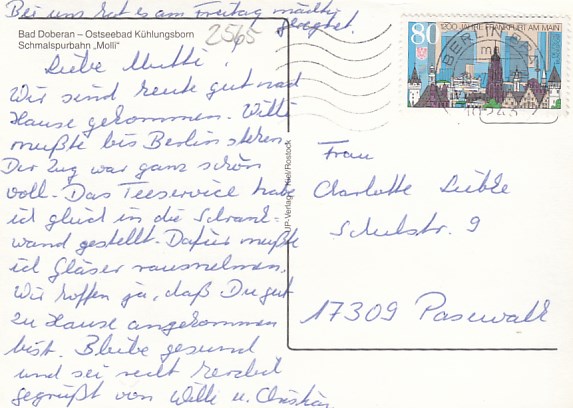 Bei uns hat es am Freitag mächtig
geregnet.
Bad Doberan – Ostseebad Kühlungsborn
Schmalspurbahn „Molli“
2565
Liebe Mutti!
Wir sind heute gut nach
Hause gekommen. Willi
mußte bis Berlin stehen.
Der Zug war ganz schön
voll. Das Teeservice habe
ich gleich in die Schrank-
wand gestellt. Dafür mußte
ich Gläser rausnehmen.
Wir hoffen ja, daß Du gut
zu Hause angekommen
bist. Bleibe gesund
und sei recht herzlich
gegrüßt von Willi u.
80
1200 JAHRE FRANKFURT AM MAIN
BERLIN
Frau
Charlotte
Schulstr. 9
17309 Pasewalk